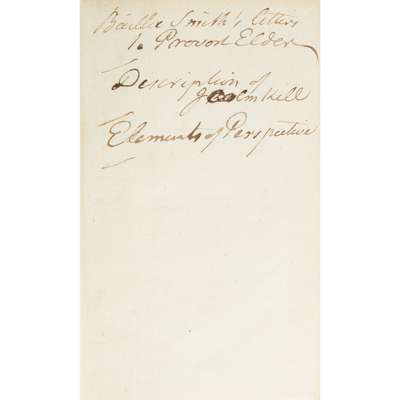 Baillie Smith's letters
to Provost Elder
Description of
Jcolmkill
Elements of Perspective